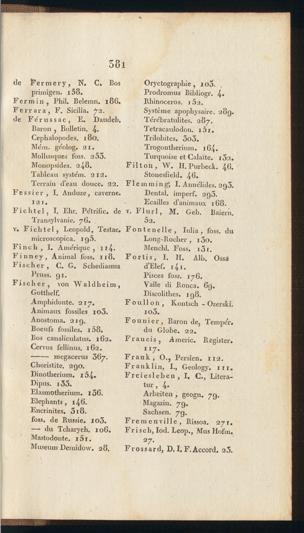 381
de Fermery, N. C. Bos
primigen. 158.
Fermin, Phil. Belemn. 186.
Ferrara, F. Sicilia. 72.
de Férussac, E. Daudeb.
Baron, Bulletin. 4.
Cephalopodes. 180.
Mém. géolog. 21.
Mollusques foss. 233.
Monopsides. 248.
Tableau systém. 212.
Terrain d'eau douce. 22.
Fessier, I. Anduze, caverne.
121.
Fichtel, I. Ehr. Pétrific. de
Transylvanie. 76.
v. Fichtel, Leopold, Testac.
microscopica. 195.
Finch, I. Amérique, 114.
Finney, Animal foss. 118.
Fischer, C. G. Schediasma
Pruss. 91.
Fischer, von Waldheim,
Gotthelf.
Amphidonte. 217.
Animaux fossiles 103.
Anostoma. 219.
Boeufs fossiles. 158.
Bos canaliculatus. 162.
Cervus fellinus. 162.
—— megacerus 367.
Choristite. 290.
Dinotherium. 154.
Dipus. 133.
Elasmotherium. 136.
Elephants, 146.
Encrinites. 318.
foss. de Russie. 103.
— du Tcharych. 106.
Mastodonte. 151.
Museum Demidow. 28.
Oryctographie, 103.
Prodromus Bibliogr. 4.
Rhinoceros. 152.
Système apophysaire. 289.
Térébratulites. 287.
Tetracaulodon. 151.
Trilobites. 303.
Trogontherium. 164.
Turquoise et Calaite. 132.
Filton, W. H. Purbeck. 46.
Stonesfield. 46.
Flemming, I. Annélides. 293.
Dental, imperf. 293.
Ecailles d'animaux. 168.
v. Flurl, M. Geb. Baiern.
52.
Fontenelle, Iulia, foss. du
Long-Rocher, 130.
Menchl. Foss. 131.
Fortis, I. H. Alb. Ossa
d'Elef. 141.
Pisces foss. 176.
Valle di Ronca. 69.
Discolithes. 198.
Foullon, Kontsch - Ozerski.
103.
Founier, Baron de, Tempér.
du Globe. 22.
Francis, Americ. Register.
117.
Frank, O., Persien. 112.
Franklin, I., Geology. 111.
Freiesleben, I. C., Litera-
tur, 4.
Arbeiten, geogn. 79.
Magazin. 79.
Sachsen. 79.
Fremenville, Rissoa. 271.
Frisch, Iod. Leop., Mus Hofm.
27.
Frossard, D. I. F. Accord. 23.